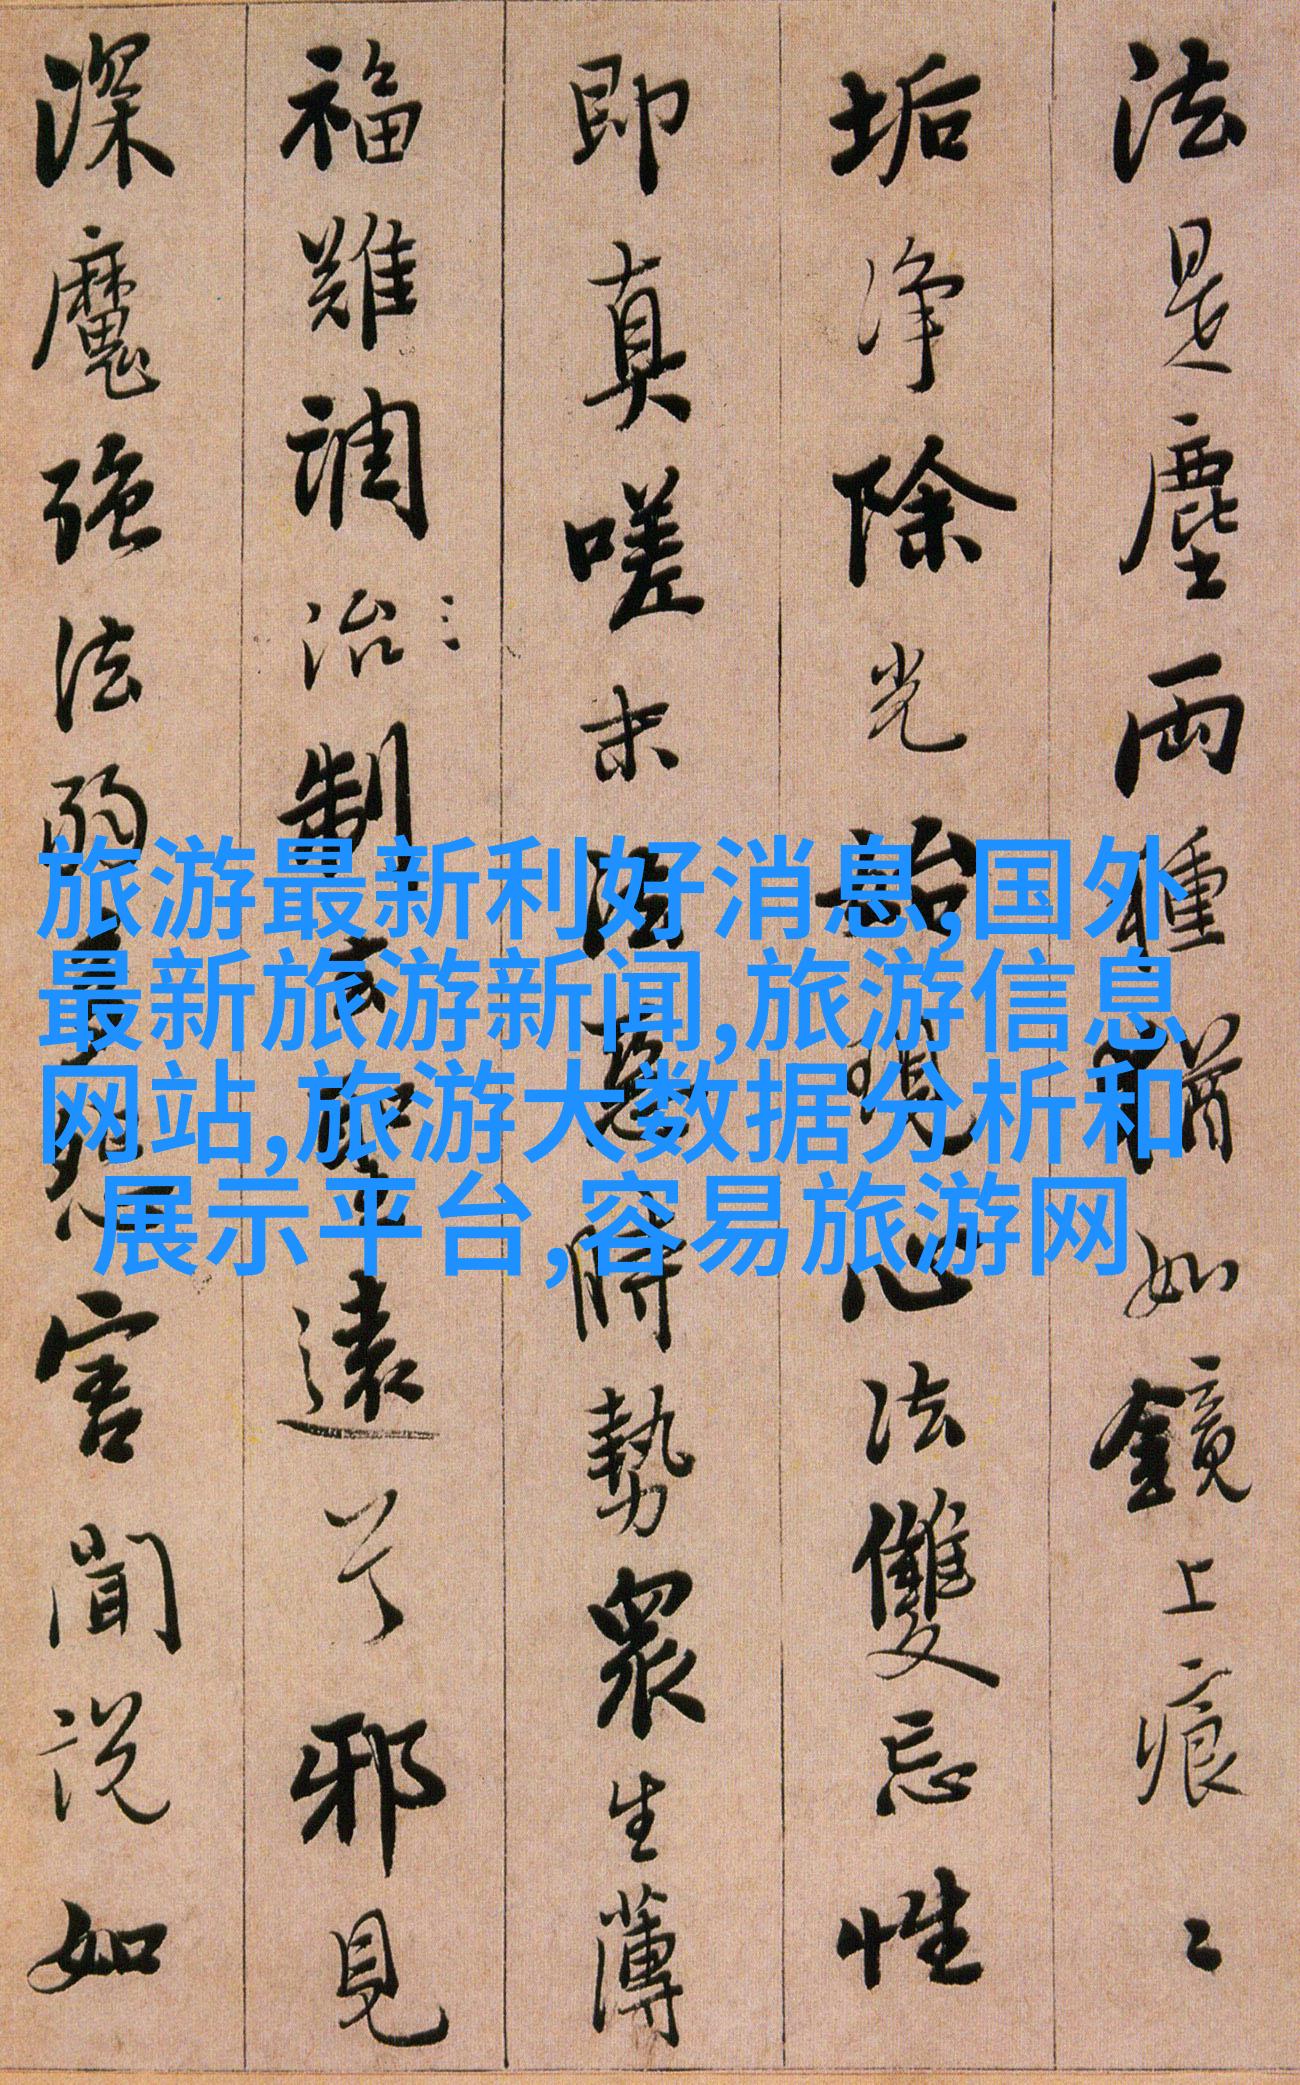 法是塵兩種猶如鏡上痕〻
垢净除光始現心法雙忘性
即真嗟末法惡時勢衆生薄
福難調治制去聖遠兮邪見
深魔強法弱多怨害聞說如
旅游最新利好消息,国外
最新旅游新闻,旅游信息
网站,旅游大数据分析和
展示平台,容易旅游网